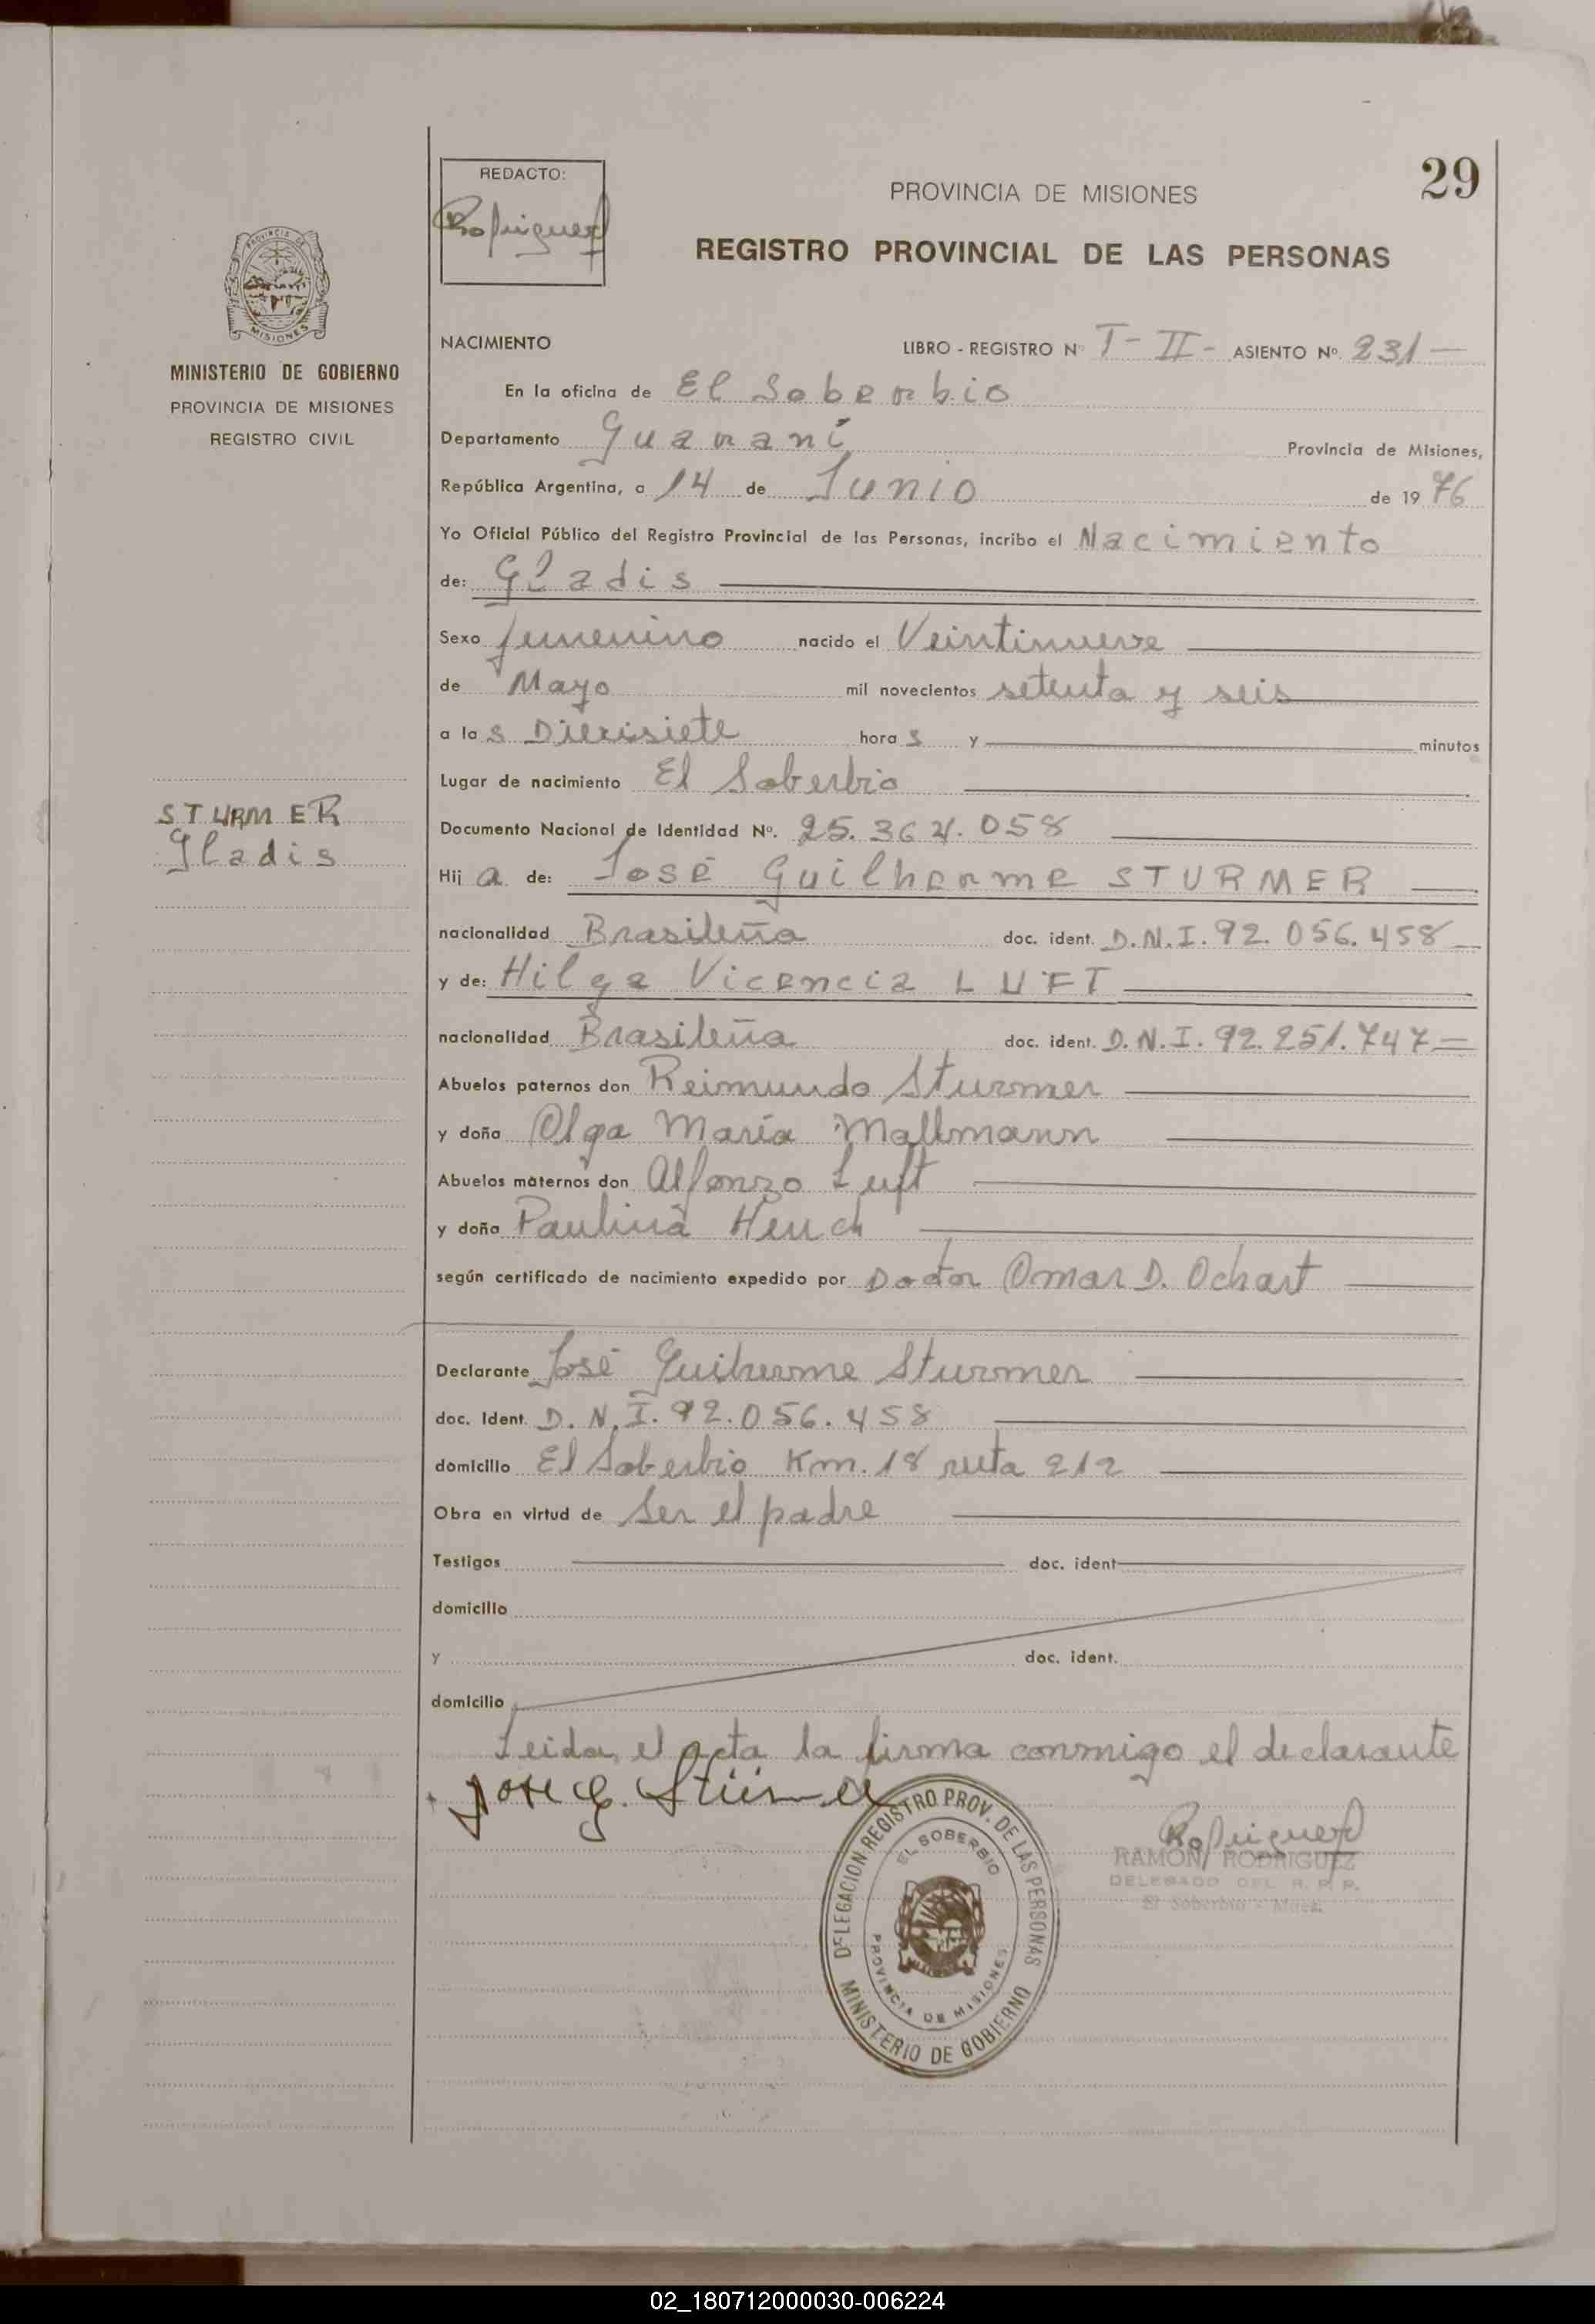 29
REDACTO:
Rodriguez
PROVINCIA DE MISIONES
REGISTRO PROVINCIAL DE LAS PERSONAS
PROVINCIA DE
MISIONES
MINISTERIO DE GOBIERNO
PROVINCIA DE MISIONES
REGISTRO CIVIL
NACIMIENTO LIBRO - REGISTRO Nº T- II - ASIENTO Nº. 231 —
En la oficina de El Soberbio
Departamento Guaraní Provincia de Misiones,
República Argentina, a 14 de Junio de 19 76
Yo Oficial Público del Registro Provincial de las Personas, incribo el Nacimiento
de: Gladis
Sexo femenino nacido el Veintinueve
de Mayo mil novecientos setenta y seis
a la s Diecisiete hora s y minutos
Lugar de nacimiento El Soberbio
STURMER
Gladis
Documento Nacional de Identidad Nº. 25.364.058
Hij a de: José Guilherme STURMER
nacionalidad Brasileña doc. ident. D.N.I. 92.056.458
y de: Hilga Vicencia LUFT
nacionalidad Brasileña doc. ident. D.N.I. 92.251.747=
Abuelos paternos don Reimundo Sturmer
y doña Olga María Mallmann
Abuelos maternos don Alfonzo Luft
y doña Paulina Heuch
según certificado de nacimiento expedido por Doctor Omar D. Ochart
Declarante José Guilherme Sturmer
doc. Ident. D.N.I. 92.056.458
domicilio El Soberbio Km. 18 ruta 212
Obra en virtud de Ser el padre
Testigos doc. ident
domicilio
y doc. ident.
domicilio
Leida el acta la firma conmigo el declarante
Jose G. Stürmer
DELEGACION REGISTRO PROV. DE LAS PERSONAS
EL SOBERBIO
PROVINCIA DE MISIONES
MINISTERIO DE GOBIERNO
Rodriguez
RAMON RODRIGUEZ
DELEGADO DEL R. P. P.
El Soberbio - Mnes.
02_180712000030-006224